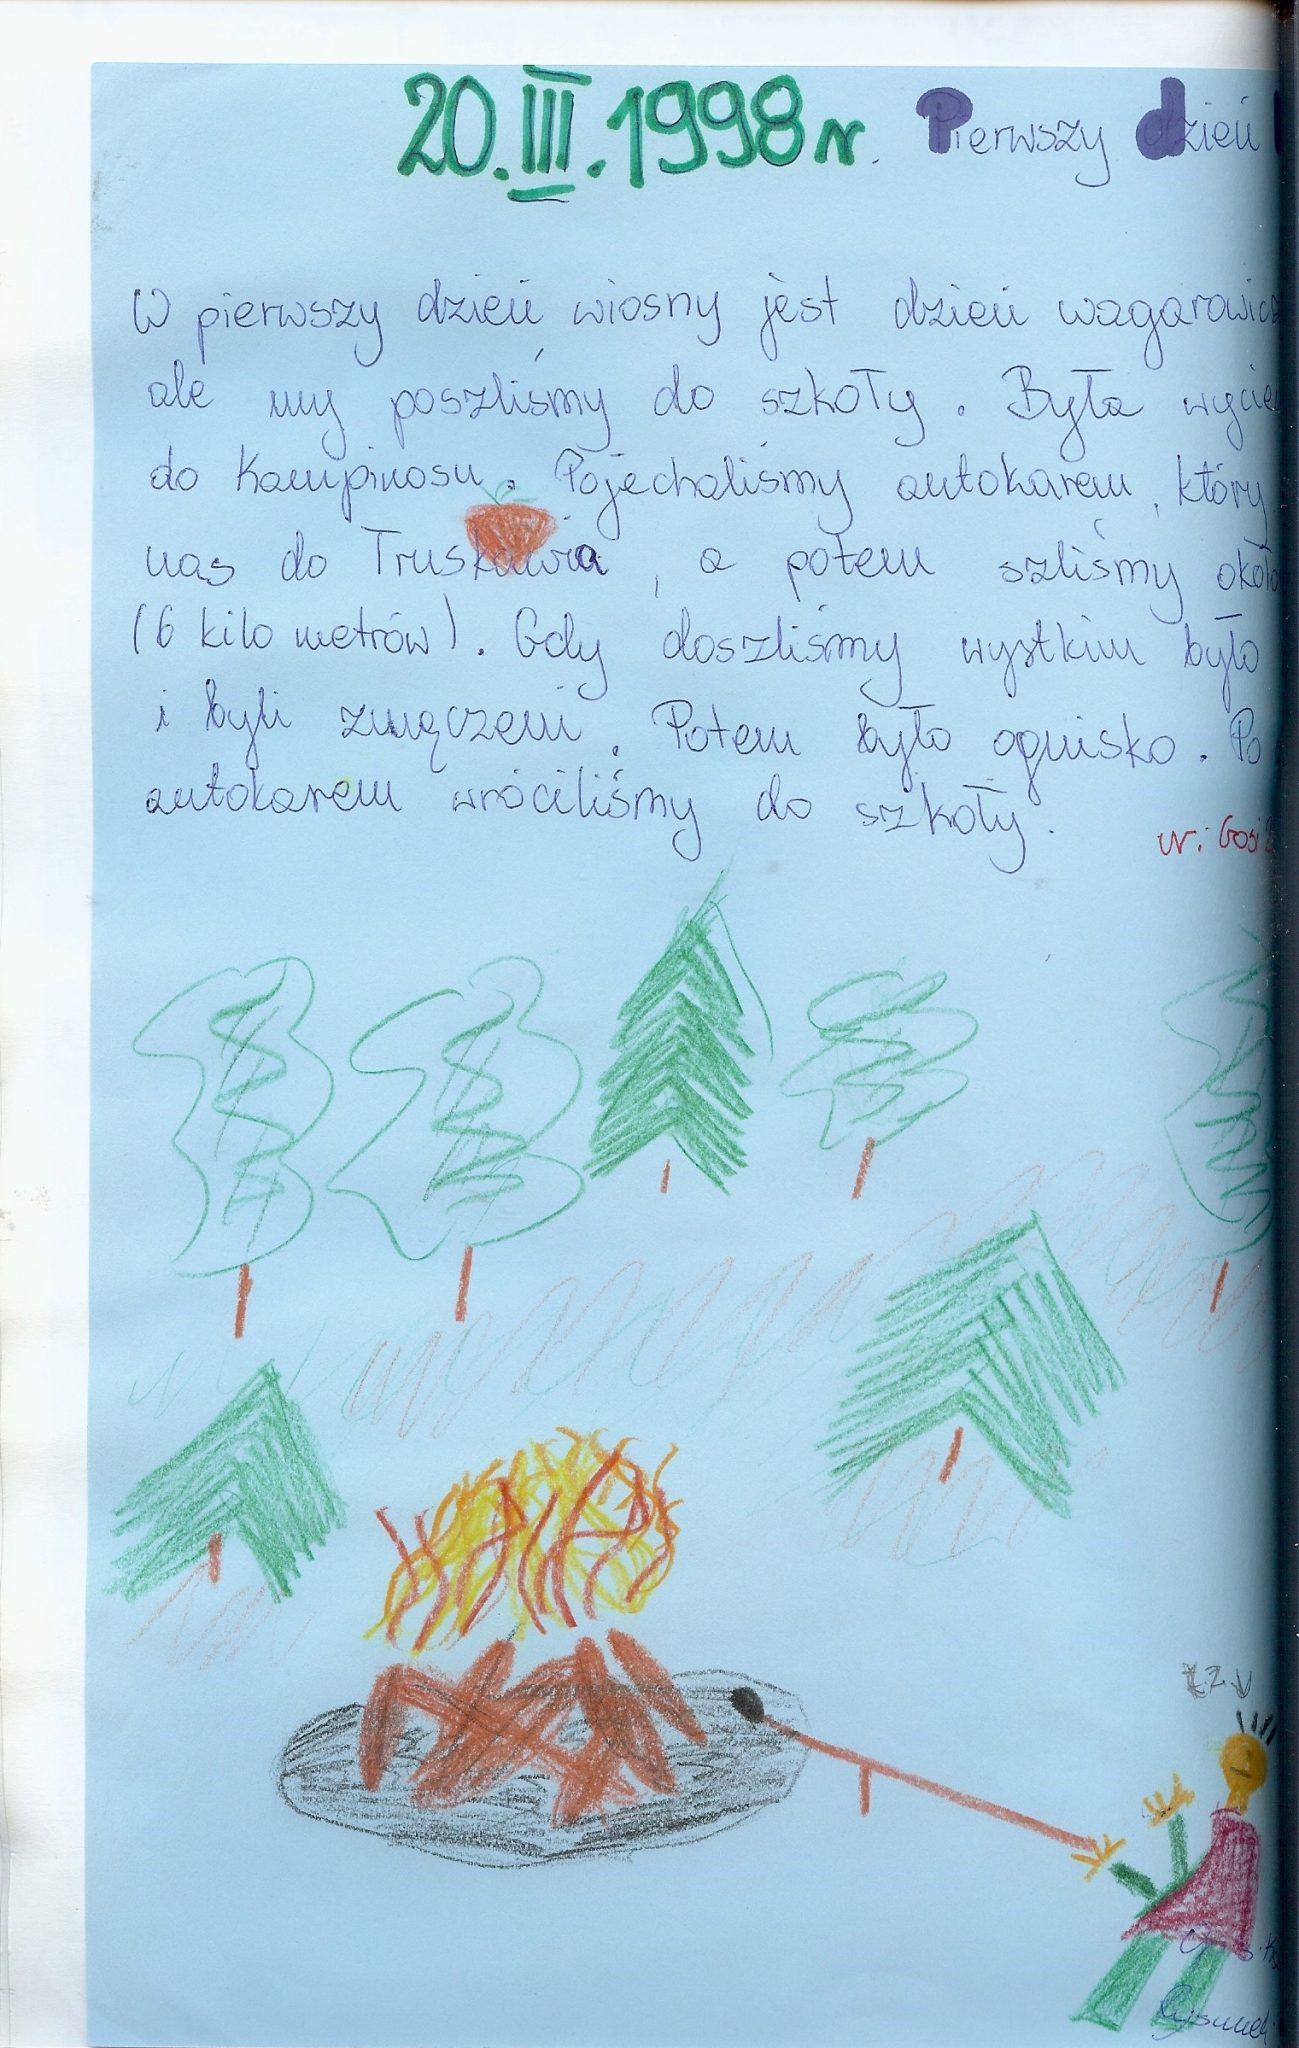 20.III.1998r. Pierwszy dzień
W pierwszy dzień wiosny jest dzień wagarowicz
ale my poszliśmy do szkoły. Była wycie
do Kampinosu. Pojechaliśmy autokarem, który
nas do Truskawia, a potem szliśmy około
(6 kilo metrów). Gdy doszliśmy wystkim było
i byli zmęczeni. Potem było ognisko. Po
autokarem wróciliśmy do szkoły.
Rysunek